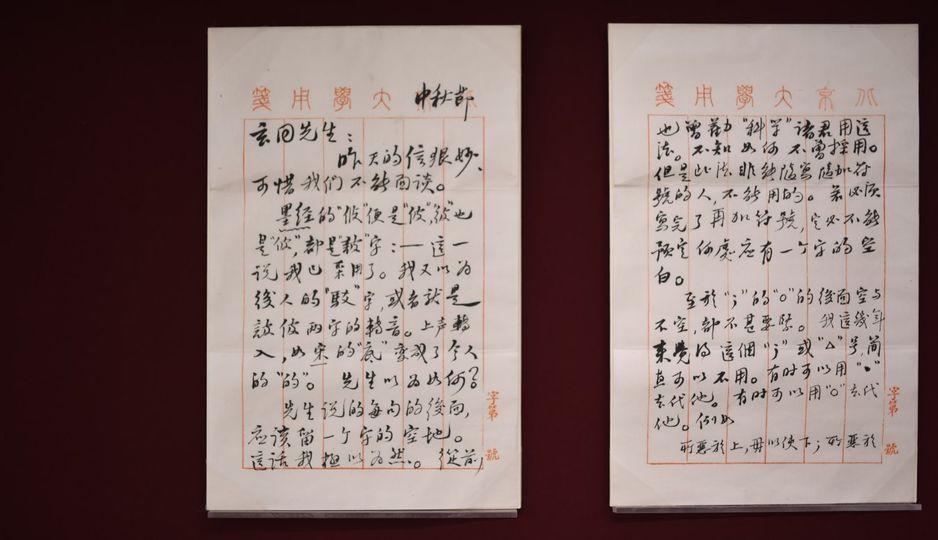 大學用箋
中秋節
玄同先生:
昨天的信狠妙、
可惜我們不能面談。
墨經的"佼"便是"佼",也
是"佼",都是字:—這一
說我已采用了。我又以為
後人的"駁"字,或者就是
佼兩字的轉音。上声轉
入,如宋的"底"變成了今人
的"的"。先生以為如何?
先生說的每句的後面,
應該留一个字的空地。
這話我極以為然。從前,
字第 號
北京大學用箋
也曾勸"科学"諸君用這
法。不知如何不曾採用。
但是此法非能隨寫隨加符
號的人,不能用的。若必須
寫完了再加符號,定必不能
預定何處应有一个字的空
白。
至於";"的"○"的後面空与
不空,都不甚要緊。我這幾年
來覺得這個";"或"△"号,簡
直可以不用。有时可以用","
去代他。有时可以用"○"去代
他。例如
所惡於上,毋以使下;所惡於
字第 號